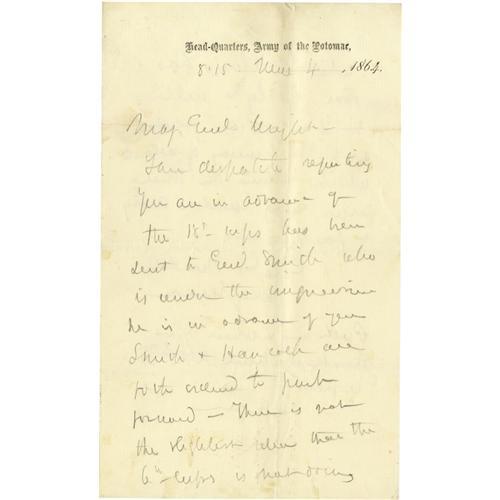 Head-Quarters, Army of the Potomac,
8.15 4 , 1864.
Maj. Genl Wright—
Your despatch reporting
You are in advance of
the 18th corps has been
sent to Genl Smith who
is under the impression
he is in advance of you
Smith & Hancock are
both ordered to push
forward — There is not
the slightest idea that the
6th corps is not doing